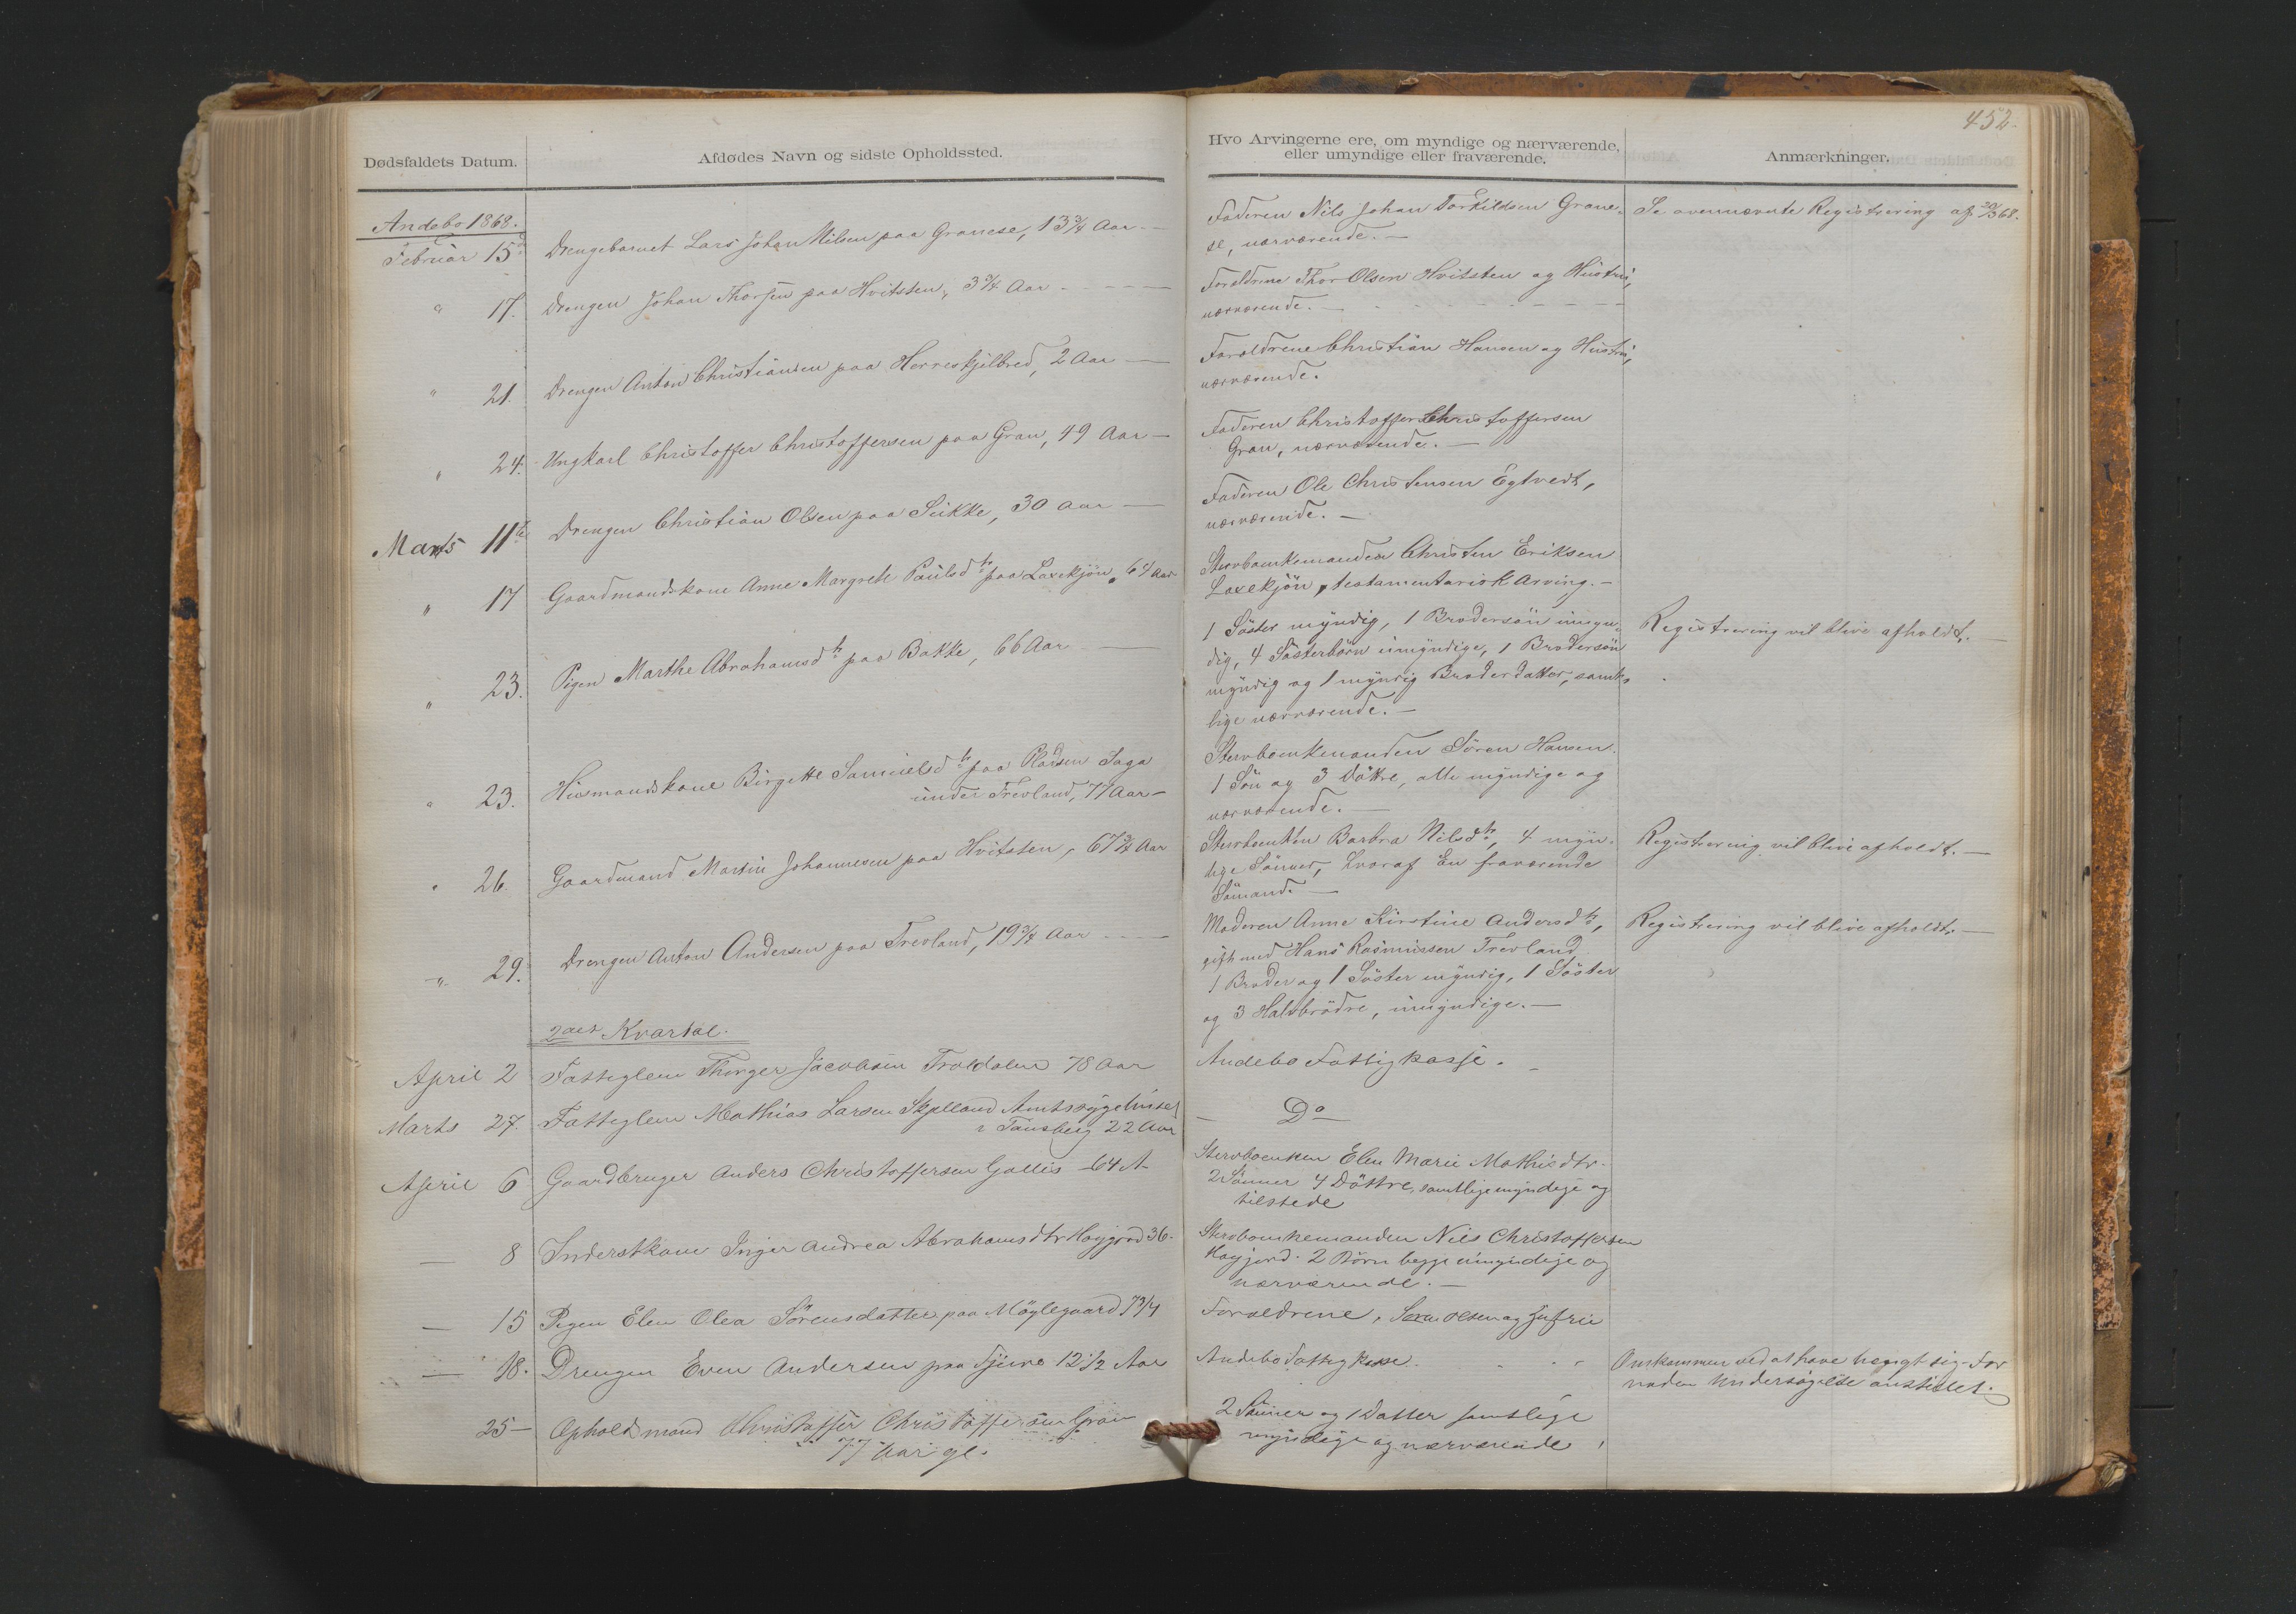 452.
Dødsfaldets Datum.
Afdødes Navn og sidste Opholdssted.
Hvo Arvingerne ere, om myndige og nærværende,
eller umyndige eller fraværende.
Anmærkninger.
Andebo 1868.
Februar 15de Drengebarnet Lars Johan Nilsen paa Granese, 13 3/4 Aar
Faderen Nils Johan Torkildsen Grane-
se, nærværende. —
Se ovennævnte Registrering af 20/3 68.
" 17. Drengen Johan Thorsen paa Hvitsten, 3 3/4 Aar
Forældrene Thor Olsen Hvitsten og Hustru,
nærværende. —
" 21. Drengen Anton Christiansen paa Herreskjilbred, 2 Aar —
Forældrene Christian Hansen og Hustru,
nærværende.
" 24. Ungkarl Christoffer Christoffersen paa Gran, 49 Aar —
Faderen Christoffer Christoffersen
Gran, nærværende. —
Marts 11te Drengen Christian Olsen paa Sukke, 30 Aar —
Faderen Ole Christensen Egtvedt,
nærværende. —
" 17 Gaardmandskone Anne Margrete Paulsdtr paa Laxekjøn, 64 Aar
Stervboenkemanden Christen Eriksen
Laxekjøn, testamentarisk Arving. —
" 23. Pigen Marthe Abrahamsdtr paa Bakke, 66 Aar —
1 Søster myndig, 1 Brodersøn umyn-
dig, 4 Søsterbørn umyndige, 1 Brodersøn
myndig og 1 myndig Broderdatter, samt-
lige nærværende. —
Registrering vil blive afholdt. —
" 23. Husmandskone Birgitte Samuelsdtr paa Pladsen Saga
under Trevland, 77 Aar —
Stervboenkemanden Søren Hansen.
1 Søn og 3 Døttre, alle myndige og
nærværende. —
" 26. Gaardmand Martin Johannesen paa Hvitsten, 67 3/4 Aar
Stervboenken Barbra Nilsdtr, 4 myn-
dige Sønner, hvoraf En fraværende
Sømand. —
Registrering vil blive afholdt. —
" 29. Drengen Anton Andersen paa Trevland, 19 3/4 Aar
Moderen Anne Kirstine Andersdtr,
gift med Hans Rasmussen Trevland
1 Broder og 1 Søster myndig, 1 Søster
og 3 Halvbrødre, umyndige. —
Registrering vil blive afholdt. —
2det Kvartal.
April 2 Fattiglem Thorger Jacobsen Troldalen 78 Aar
Andebo Fattigkasse.
Marts 27. Fattiglem Mathias Larsen Skjelland Amtssygehuset
i Tønsberg 22 Aar
— Do —
April 6 Gaardbruger Anders Christoffersen Gallis 64 A
Stervboenken Elen Marie Mathisdtr.
2 Sønner 4 Døttre, samtlige myndige og
tilstede
— 8 Inderstkone Inger Andrea Abrahamsdtr Høygjord 36.
Stervboenkemanden Nils Christoffersen
Høyjord. 2 Børn begge umyndige og
nærværende. —
— 15 Pigen Elen Olea Sörensdatter paa Møylegaard 7 3/4
Forældrene, Søren Olsen og Hustru
— 18. Drengen Even Andersen paa 12 1/2 Aar
Andebo Fattigkasse.
Omkommen ved at have hængt sig. For
Undersøgelse anstillet.
25 — Opholdsmand Christoffer Christoffersen Gran
77 Aar gl.
2 Sönner og 1 Datter samtlige
myndige og nærværende